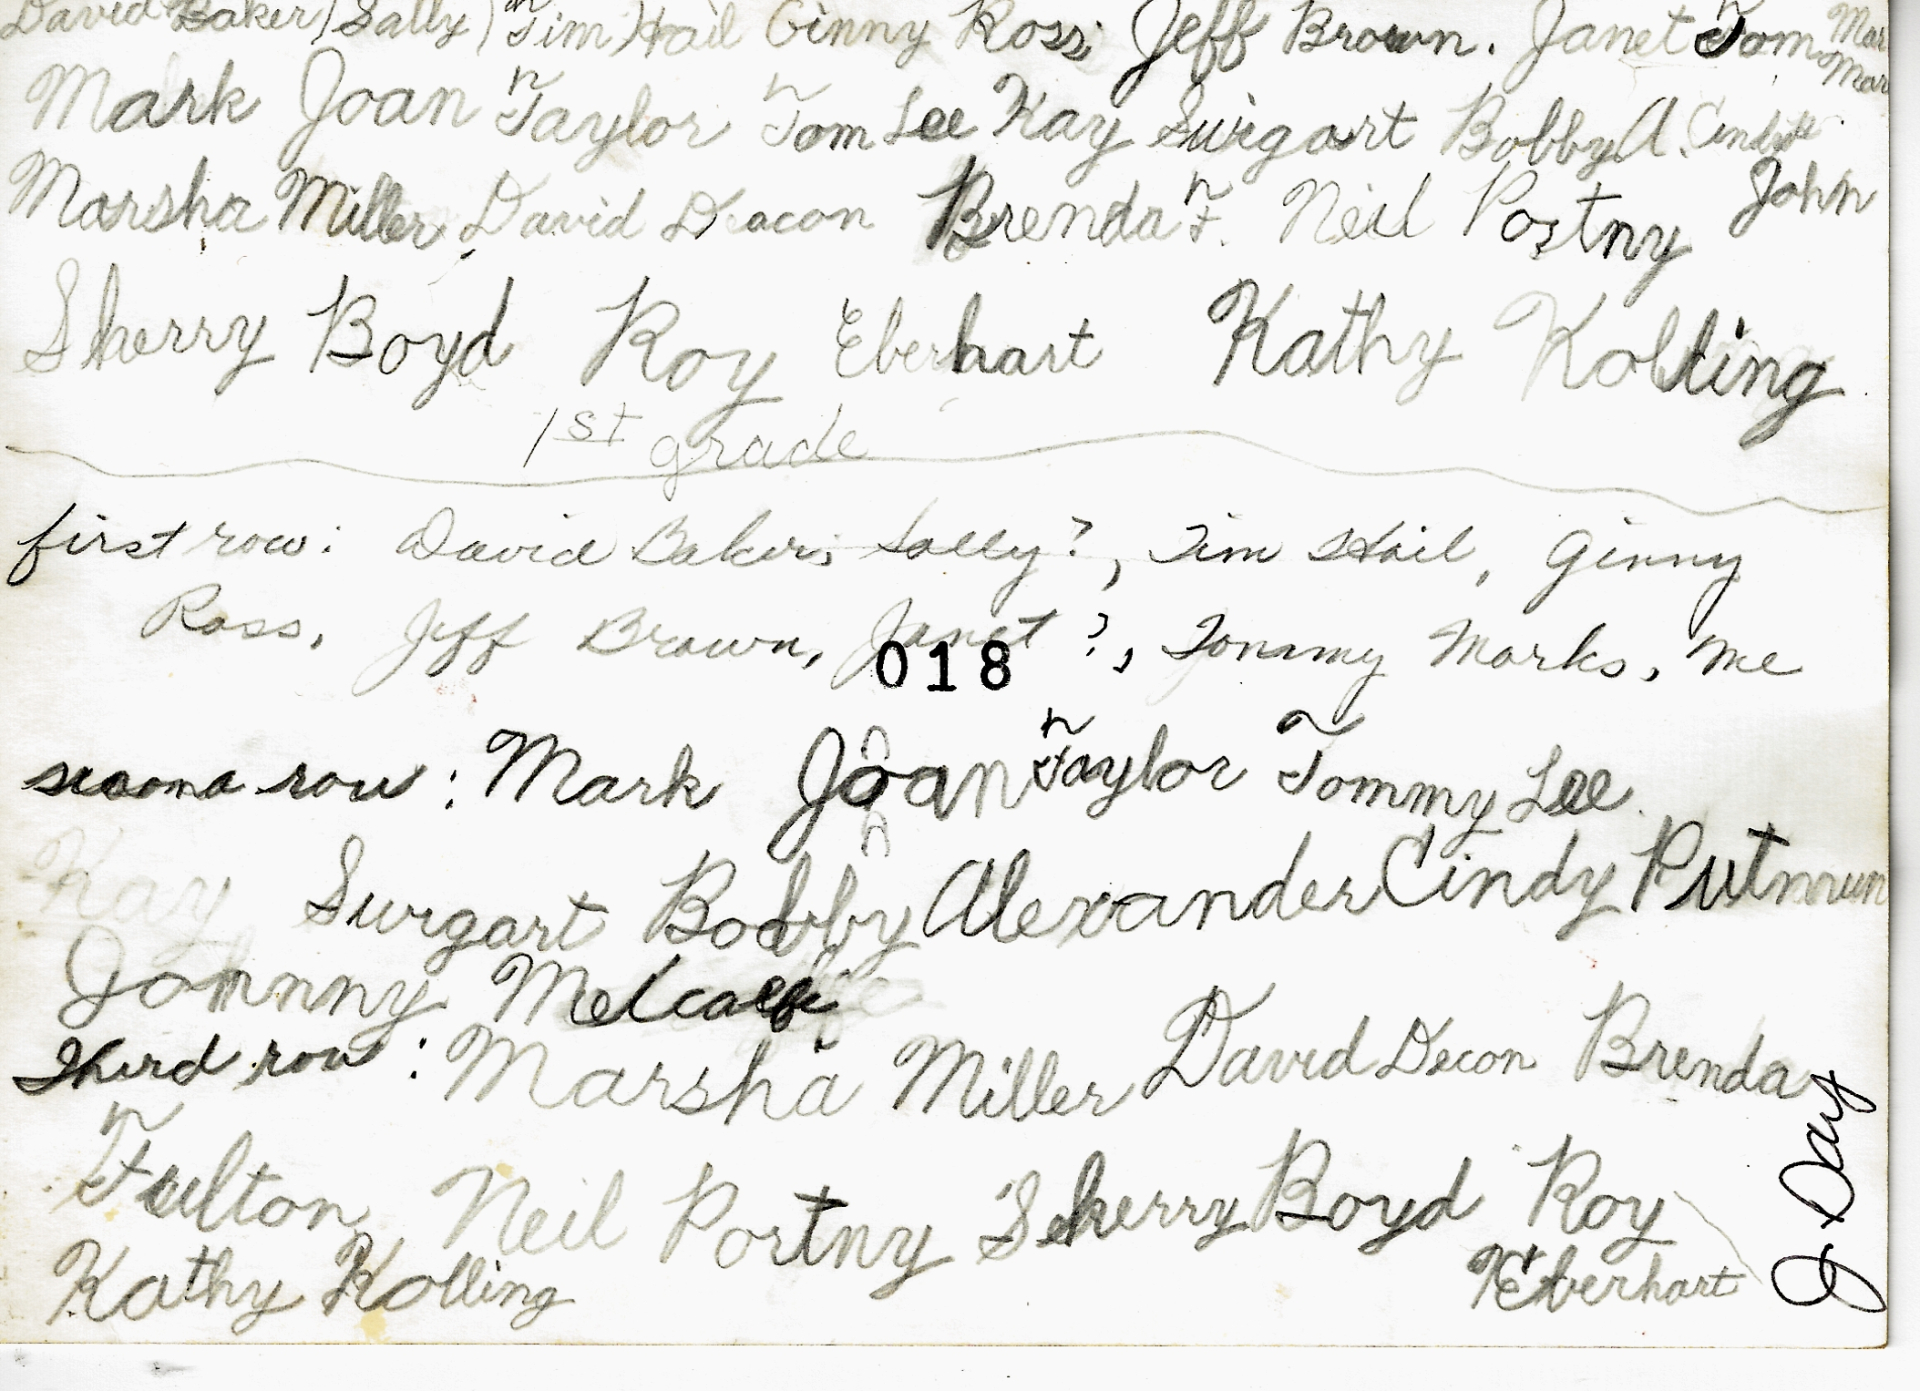 David Baker Sally Tim Hail Ginny Ross Jeff Brown. Janet Tom Mar
Mar
Mark Joan Taylor Tom Lee Kay Swigart Bobby A. Cindy
John
Marsha Miller David Deacon Brenda F. Neil Portny
Sherry Boyd Roy Eberhart Kathy Kolling
1st grade
first row: David Baker, Sally?, Tim Hail, Ginny
Ross, Jeff Brown, Janet ?, Tommy Marks, me
018
second row: Mark Joan Taylor Tommy Lee
Kay Swigart Bobby Alexander Cindy
Johnny Metcalfe
Third row: Marsha Miller David Decon Brenda
Fulton Neil Portny Sherry Boyd Roy
Eberhart
Kathy Kolling
J. Day